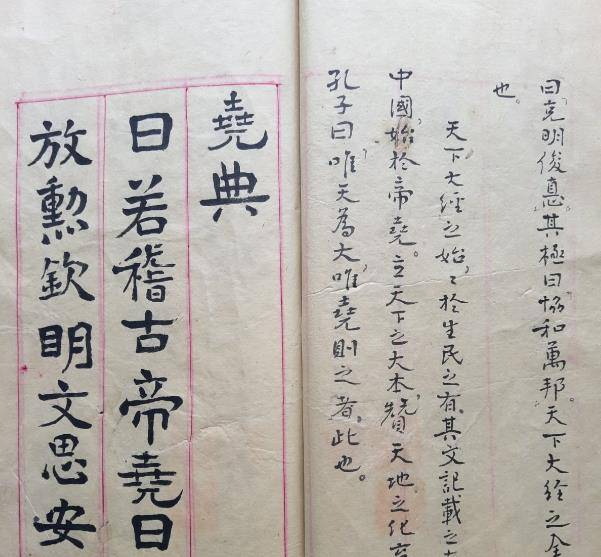 曰,克明俊悳。其極曰,協和萬邦。天下大經之全
也。
天下大經之始,々於生民之有。其文記載之
中國,始於帝堯。立天下之大本,贊天地之化育
孔子曰,唯天為大,唯堯則之者,此也。
堯典
曰若稽古帝堯曰
放勳欽明文思安